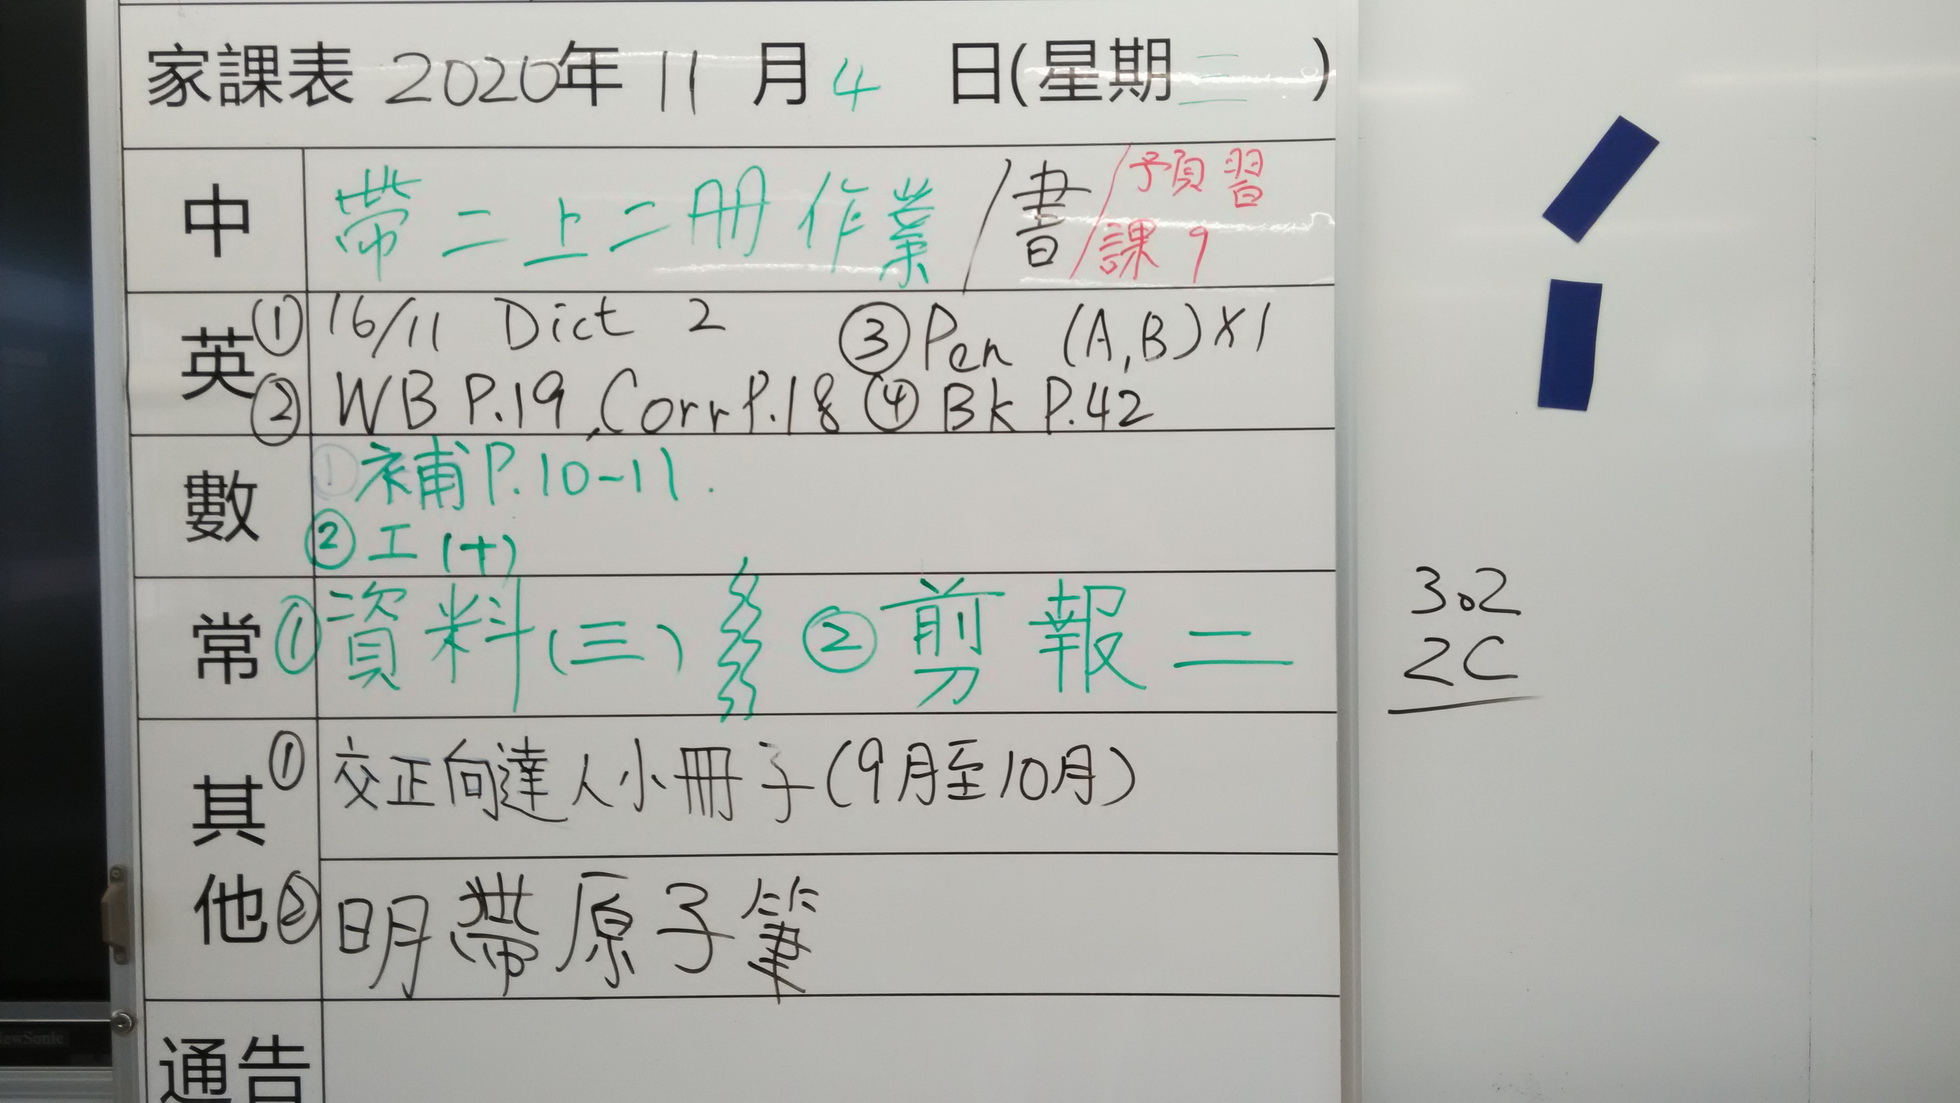 家課表 2020年 11 月 4 日(星期三)
中 帶二上二冊作業/書/預習
課9
英 ① 16/11 Dict 2 ③ Pen (A,B)x1
② WB P.19, Corr P.18 ④ Bk P.42
數 ① 補 P.10-11.
② 工(十)
常 ① 資料(三) ② 剪報二
其他 ① 交正向達人小冊子(9月至10月)
② 明帶原子筆
通告
302
2C
ViewSonic